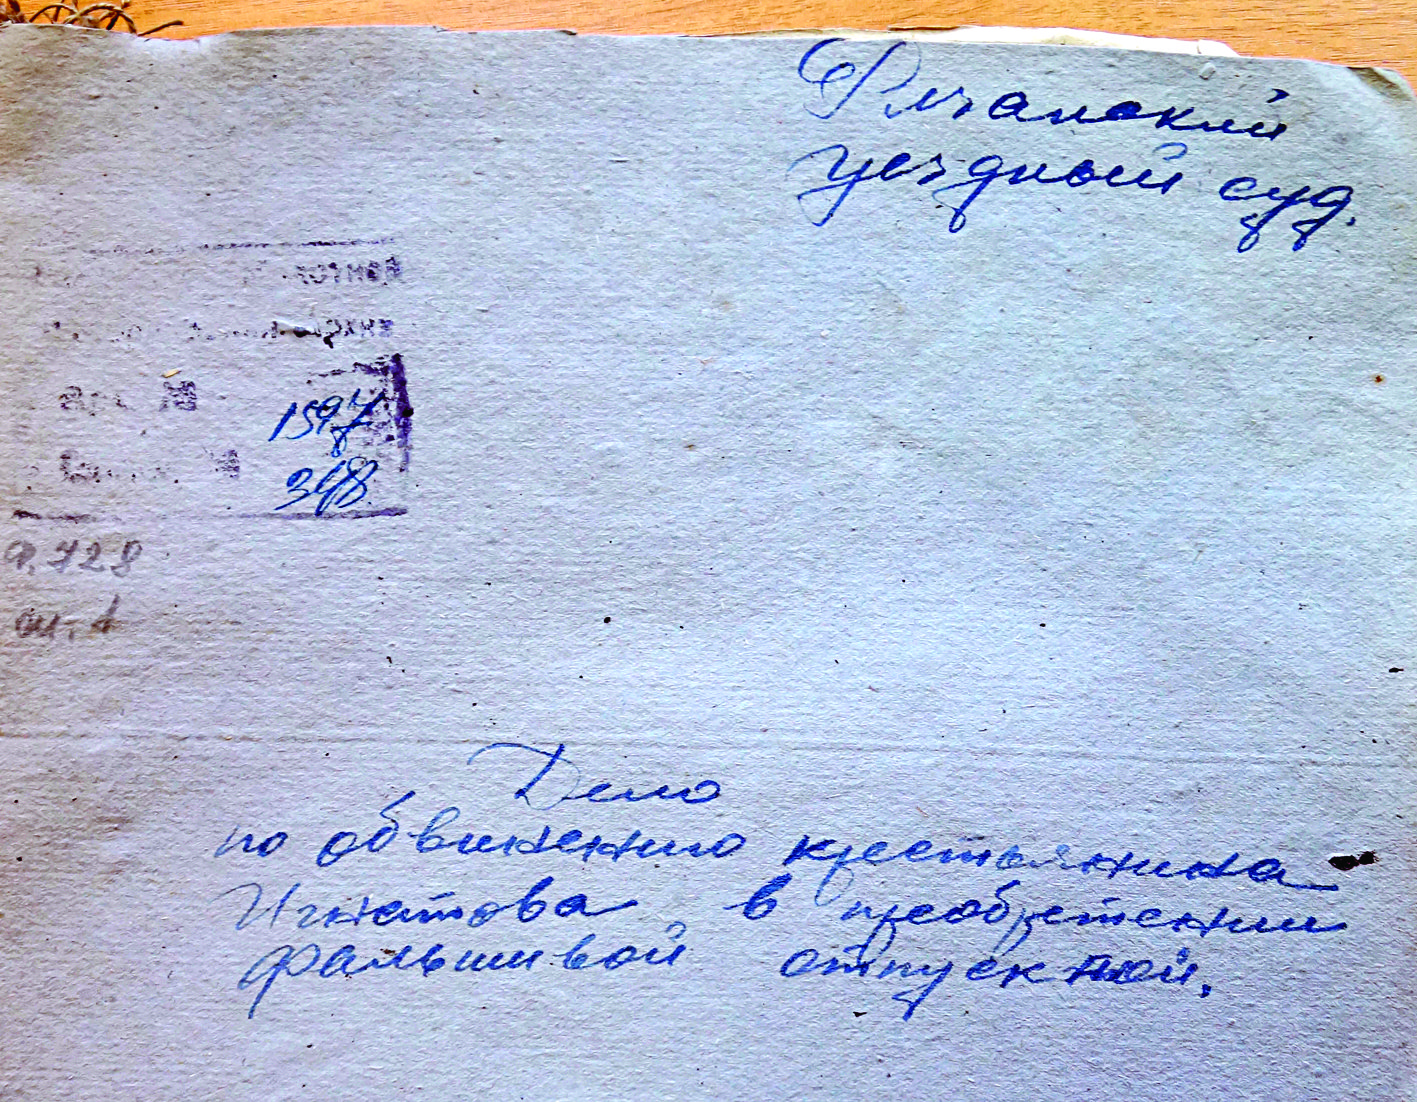 Рязанский
уездный суд.
1597
348
Ф. 728
оп. 1
Дело
по обвинению крестьянина
Игнатова в преобретении
фальшивой отпускной.